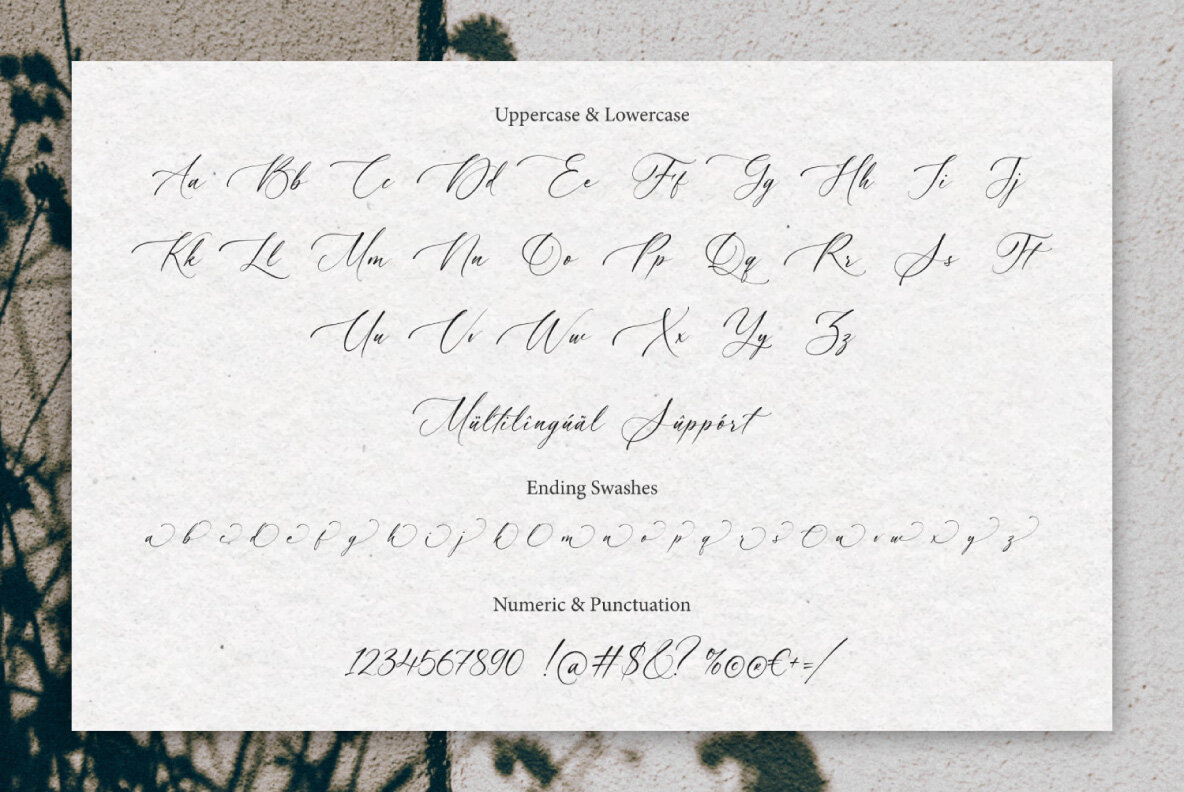 Uppercase & Lowercase
Aa Bb Cc Dd Ee Ff Gg Hh Ii Jj
Kk Ll Mm Nn Oo Pp Qq Rr Ss Tt
Uu Vv Ww Xx Yy Zz
Mültilîngúäl Sûppórt
Ending Swashes
a b c d e f g h i j k l m n o p q r s t u v w x y z
Numeric & Punctuation
1234567890 !@#$&? %©®€+=/